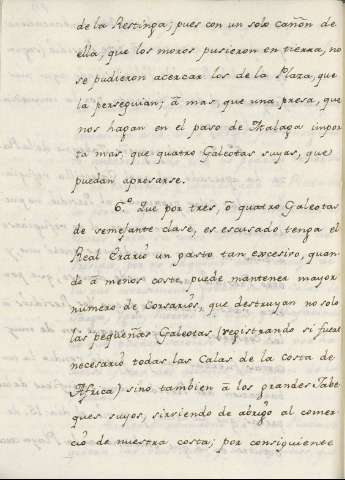 de la Restinga; pues con un solo cañon de
ella, que los moros pusieron en tierra, no
se pudieron acercar los de la Plaza, que
la perseguian; â mas, que una presa, que
nos hagan en el paso de Malaga impor
ta mas, que quatro Galeotas suyas, que
puedan apresarse.
6.º Que por tres, ô quatro Galeotas
de semejante clase, es escusado tenga el
Real Erario un gasto tan excesivo, quan-
do â menos coste, puede mantener mayor
numero de Corsarios, que destruyan no solo
las pequeñas Galeotas (registrando si fuere
necesario todas las Calas de la Costa de
Africa) sino tambien â los grandes Jabe
ques suyos, sirviendo de abrigo al comer-
cio de nuestra costa; por consiguiente